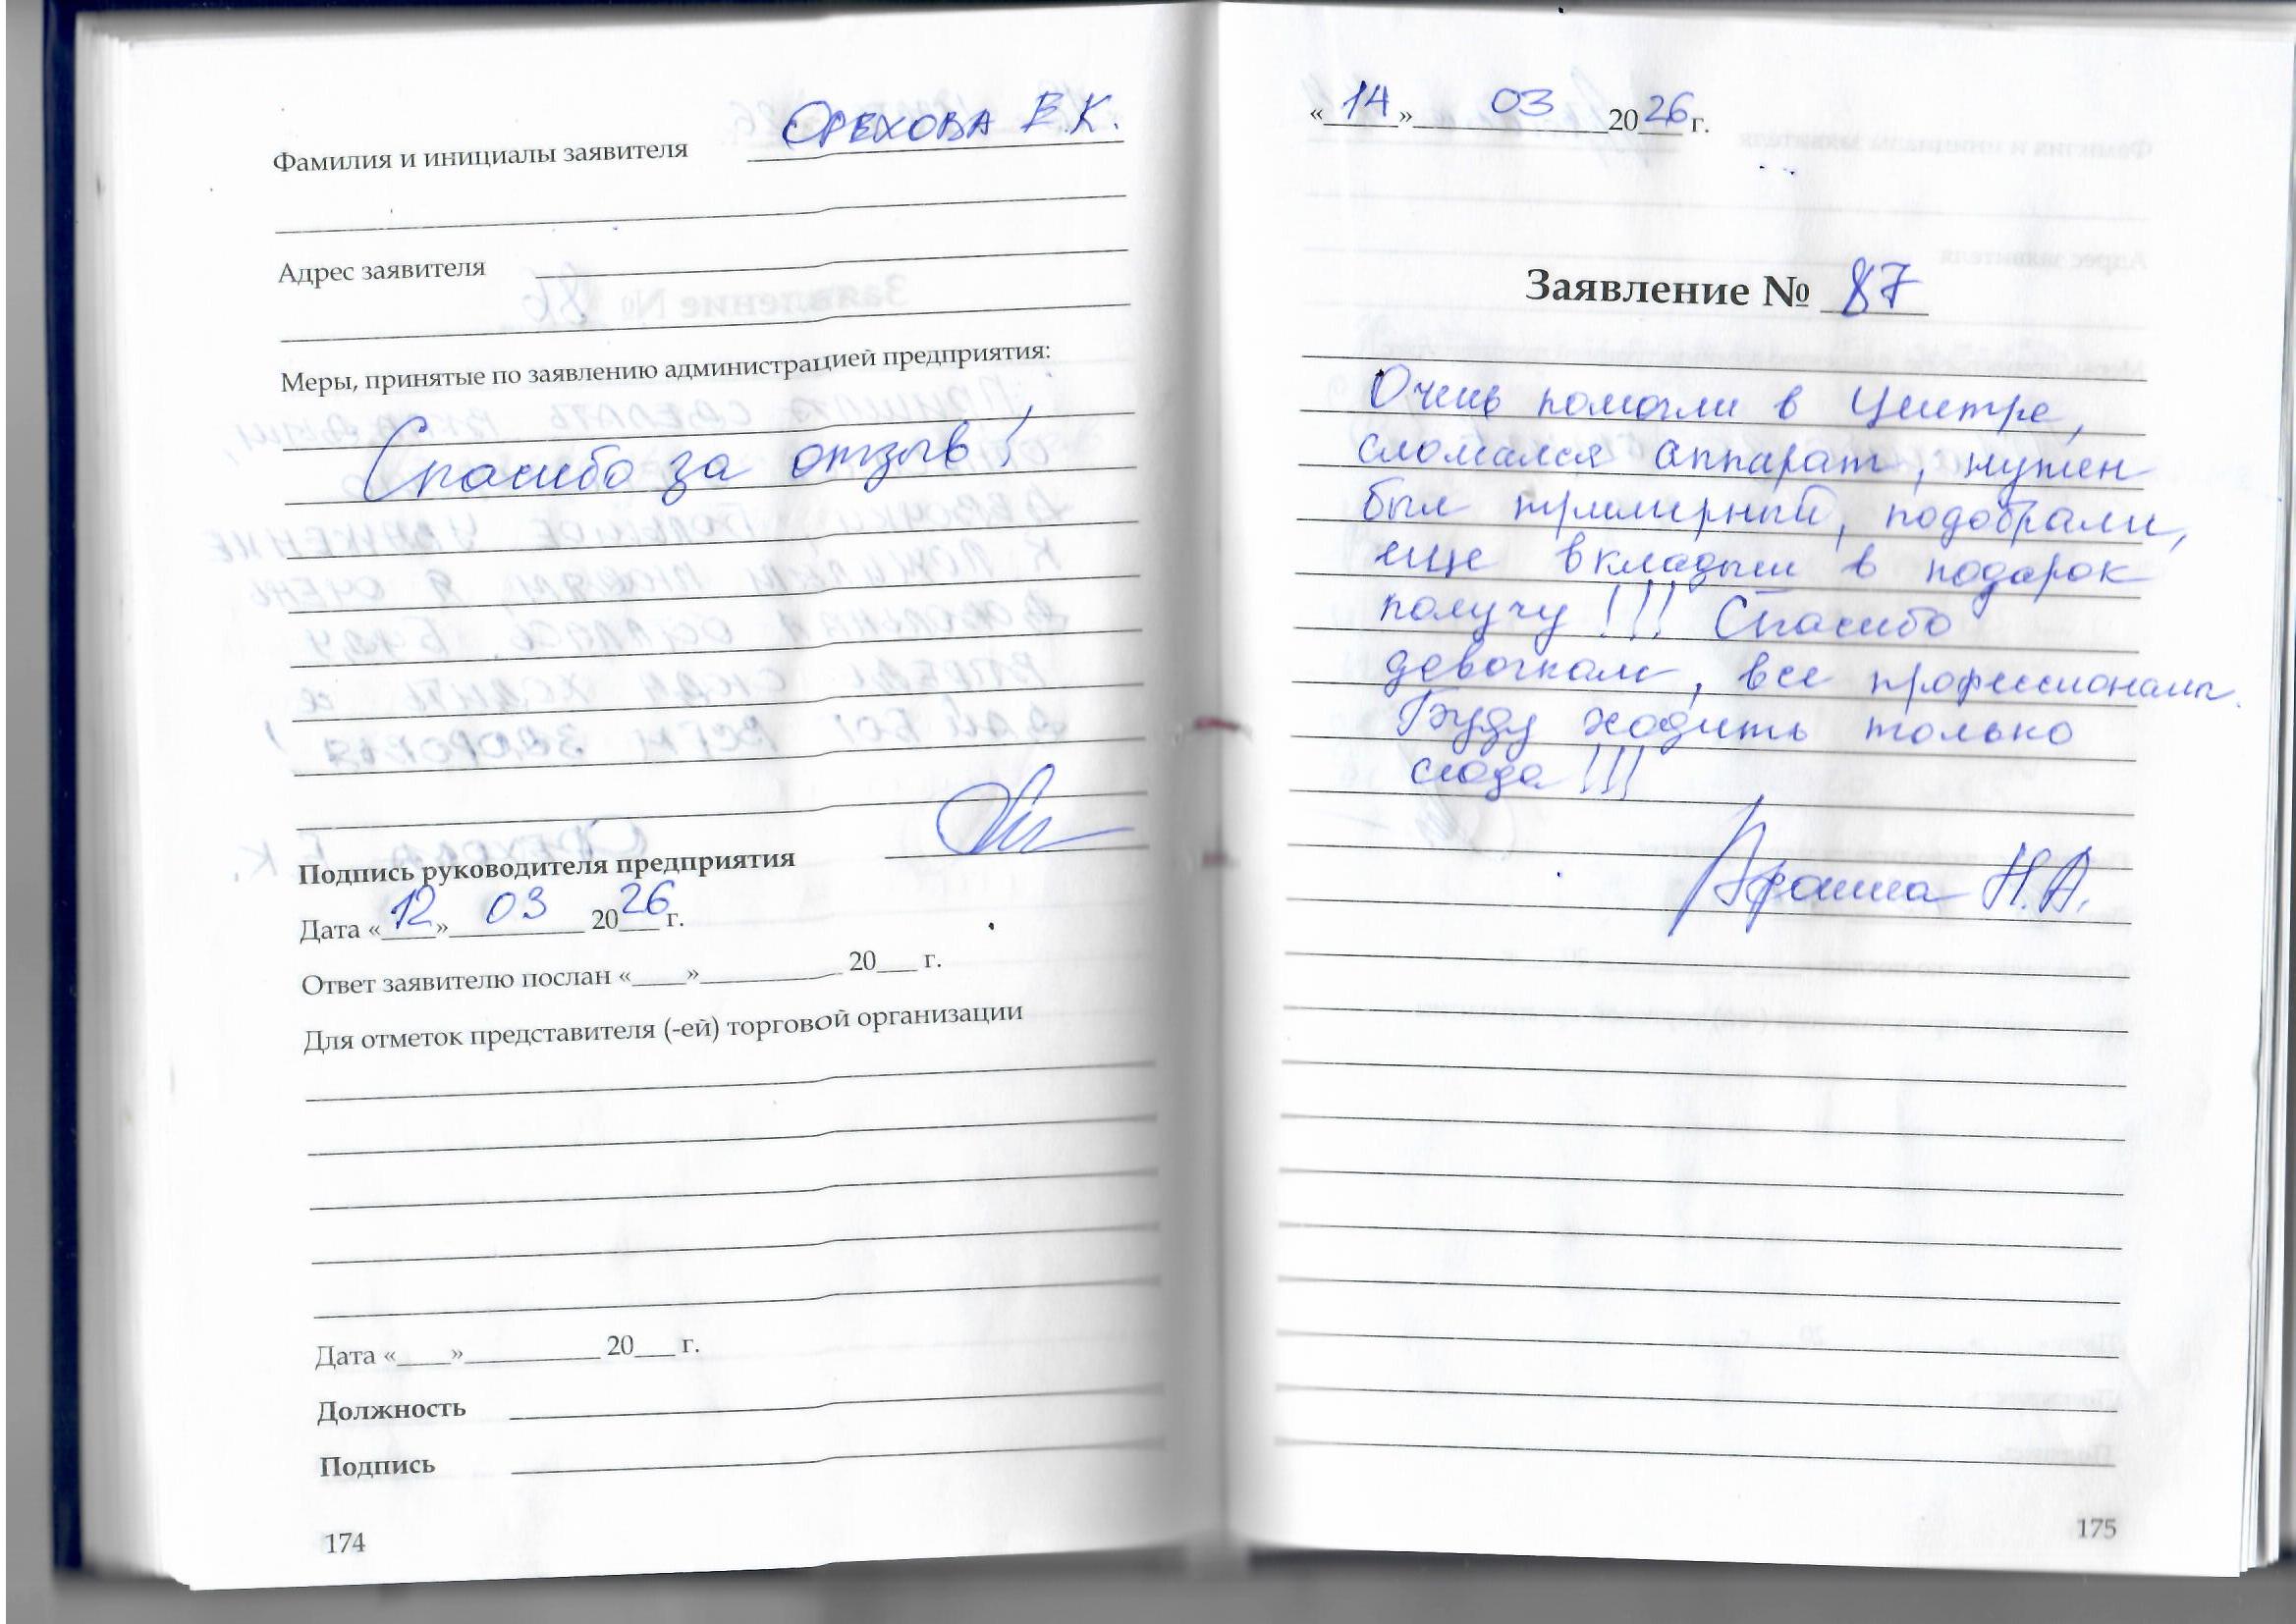 Фамилия и инициалы заявителя ОРЕХОВА Е.К.
Адрес заявителя
Меры, принятые по заявлению администрацией предприятия:
Спасибо за отзыв!
Подпись руководителя предприятия
Дата «12» 03 2026 г.
Ответ заявителю послан «____»__________ 20___ г.
Для отметок представителя (-ей) торговой организации
Дата «____»__________ 20___ г.
Должность
Подпись
174
«14» 03 2026 г.
Заявление № 87
Очень помогли в Центре,
сломался аппарат, нужен
был триммерный, подобрали,
еще вкладыш в подарок
получу!!! Спасибо
девочкам, все профессионалы.
Буду ходить только
сюда!!!
Н.А.
175